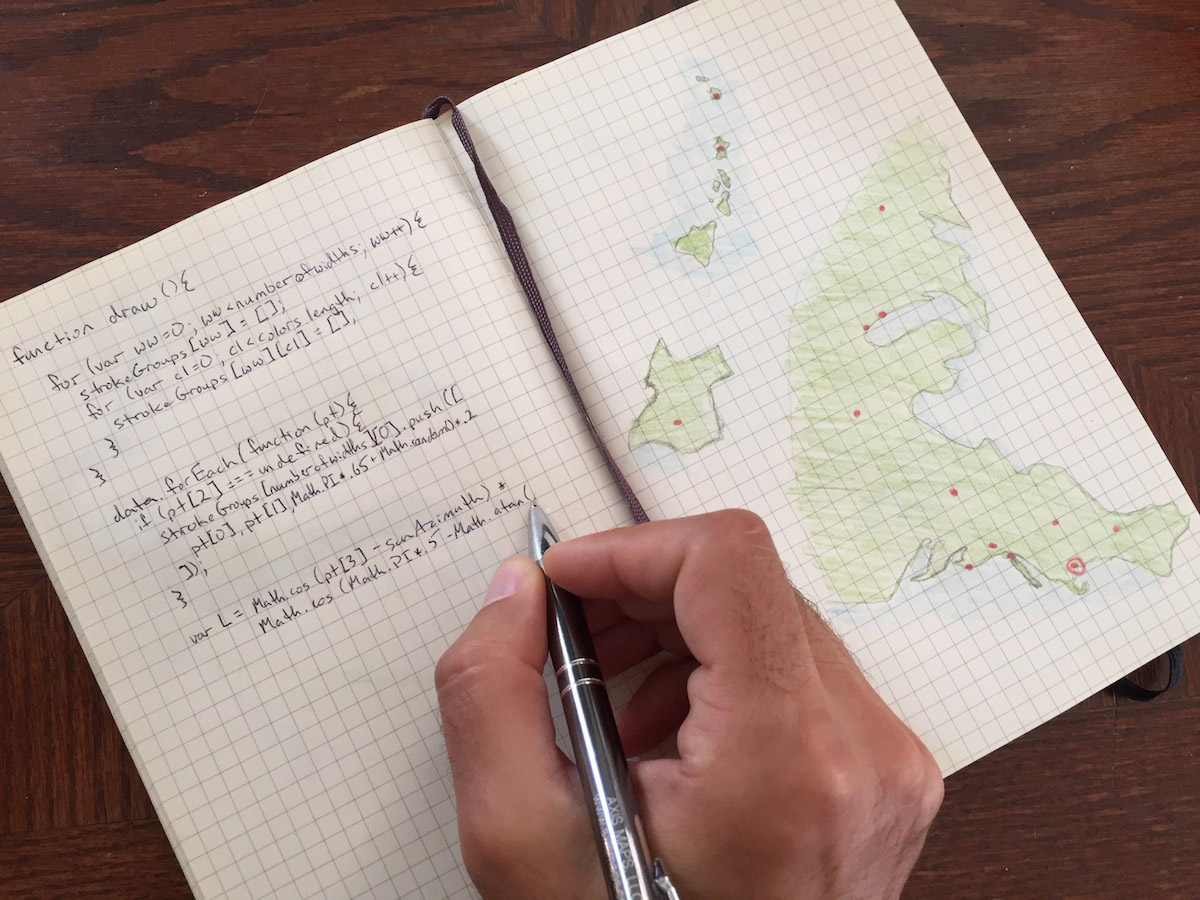 function draw(){
for (var ww=0; ww<numberofwidths; ww++){
strokeGroups[ww] = [];
for (var cl=0; cl<colors.length; cl++){
strokeGroups[ww][cl] = [];
}
}
data.forEach(function(pt){
if (pt[2] === undefined){
strokeGroups[numberofwidths][0].push([
pt[0], pt[1], Math.PI*.65+Math.random()*.2
]);
}
var L = Math.cos(pt[3]-sunAzimuth) *
Math.cos(Math.PI*.5-Math.atan(
AXIS MAPS LLC